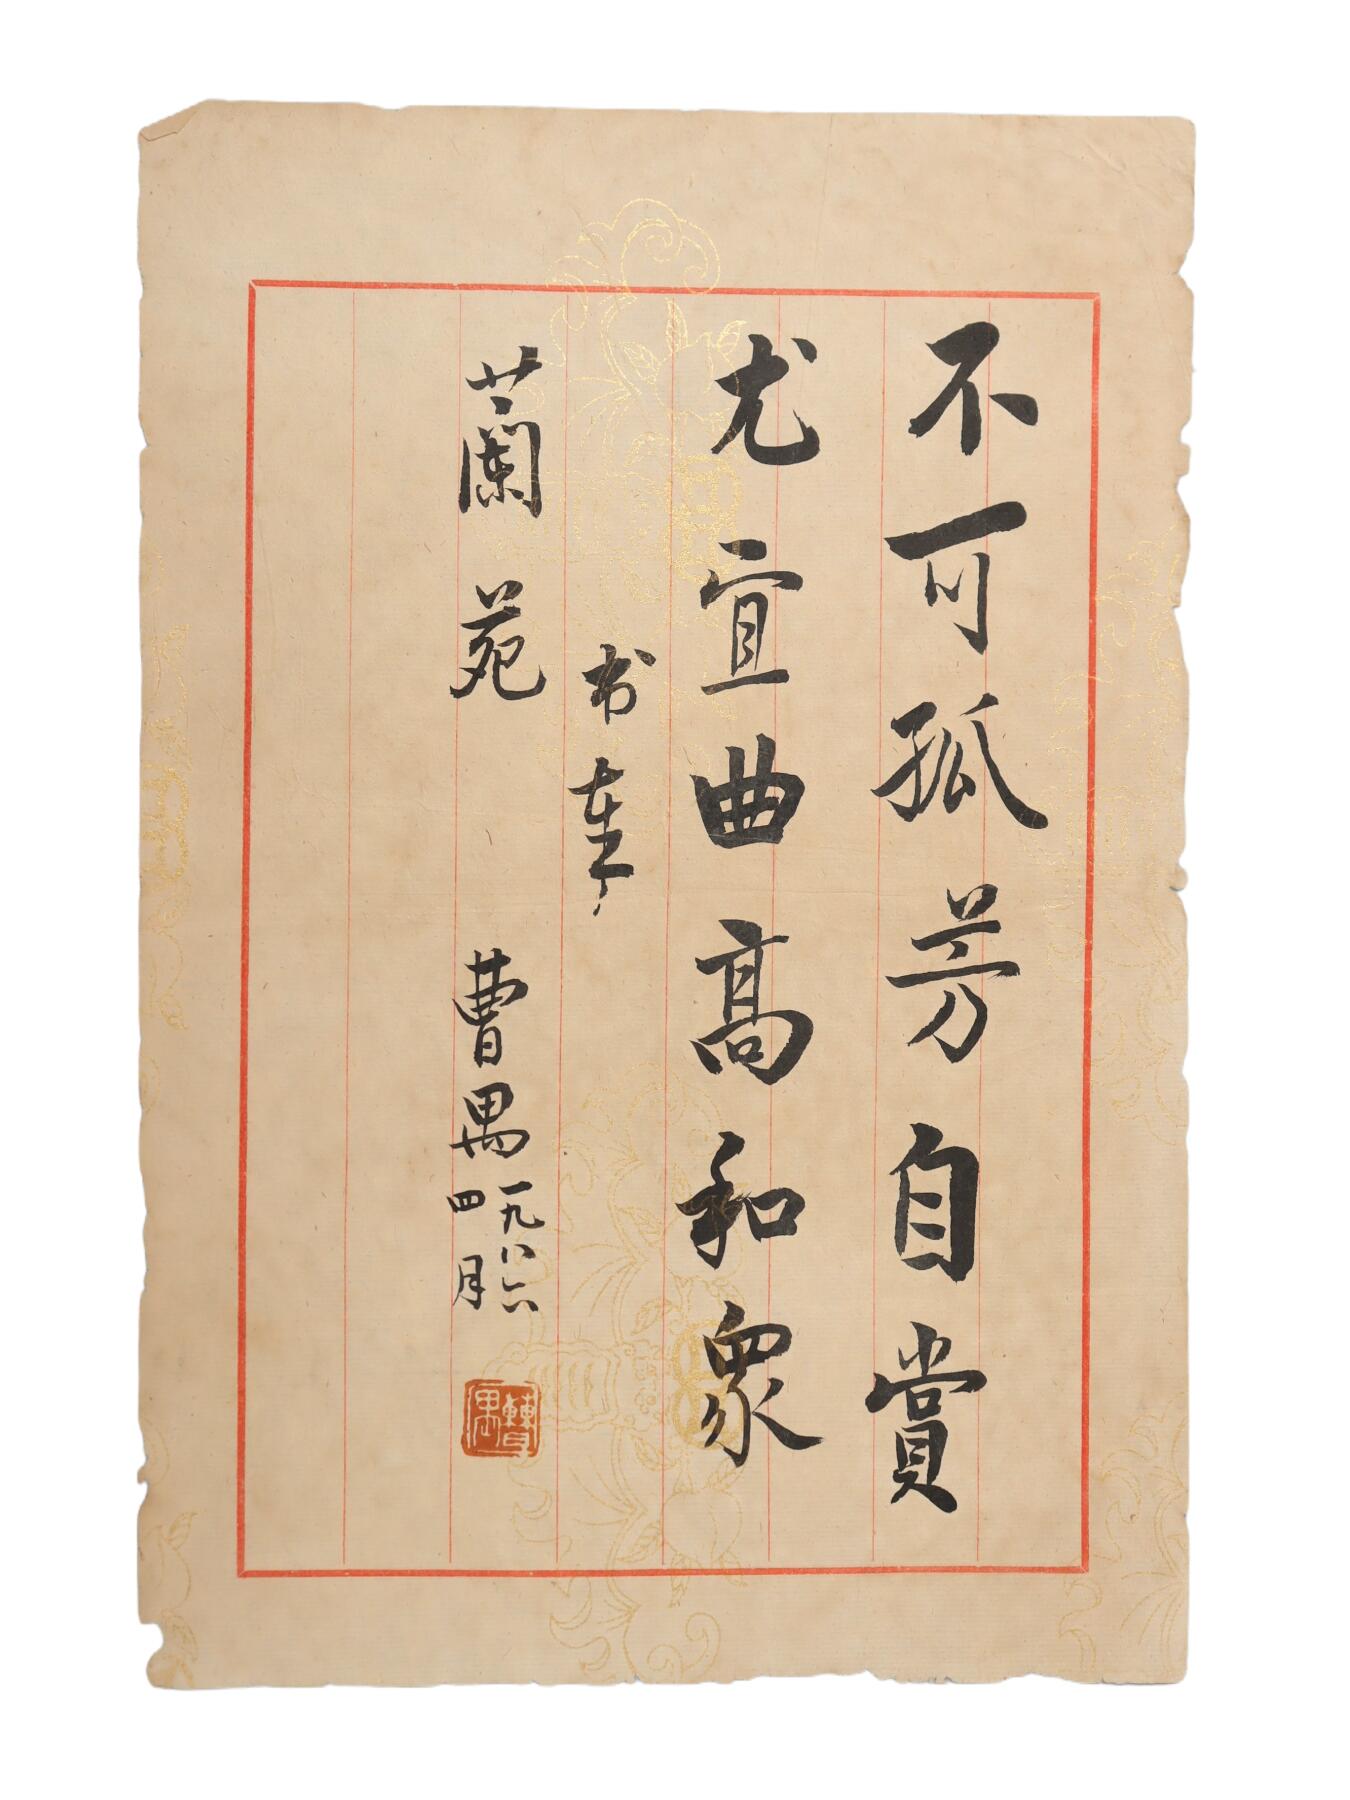 不可孤芳自賞
尤宜曲高和眾
书奉
蘭苑
曹禺
一九八六
四月
曹禺